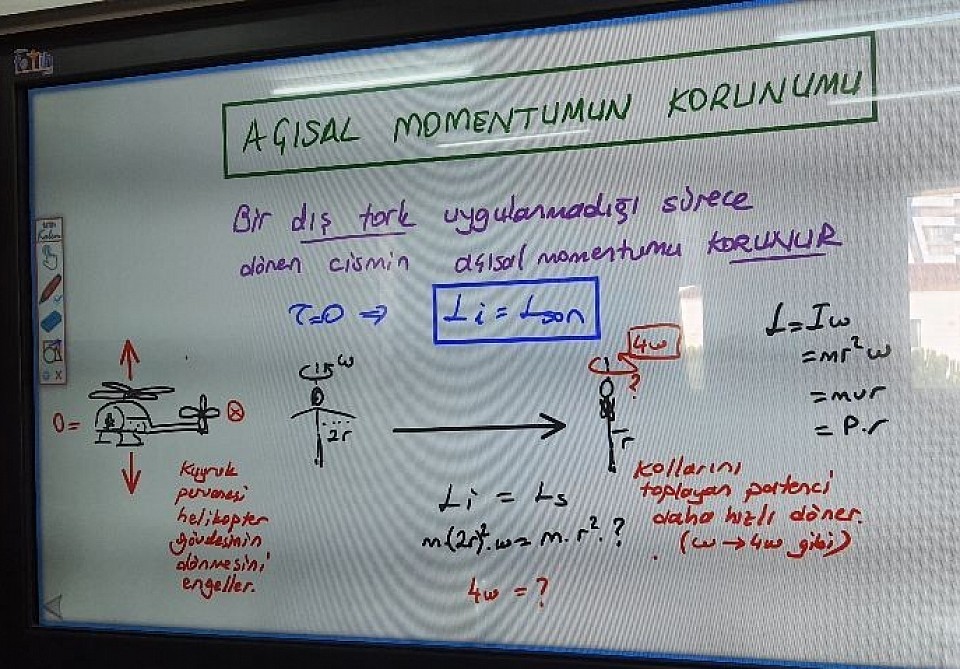 AÇISAL MOMENTUMUN KORUNUMU
Bir dış tork uygulanmadığı sürece
dönen cismin açısal momentumu KORUNUR
τ=0 ⇒ Li = Lson
L=Iω
=mr²ω
=mvr
=P.r
0=
ω
2r
4ω
?
r
Kuyruk
pervanesi
helikopter
gövdesinin
dönmesini
engeller.
Li = Ls
m(2r)².ω = m.r².?
4ω = ?
Kollarını
toplayan patenci
daha hızlı döner.
(ω→4ω gibi)